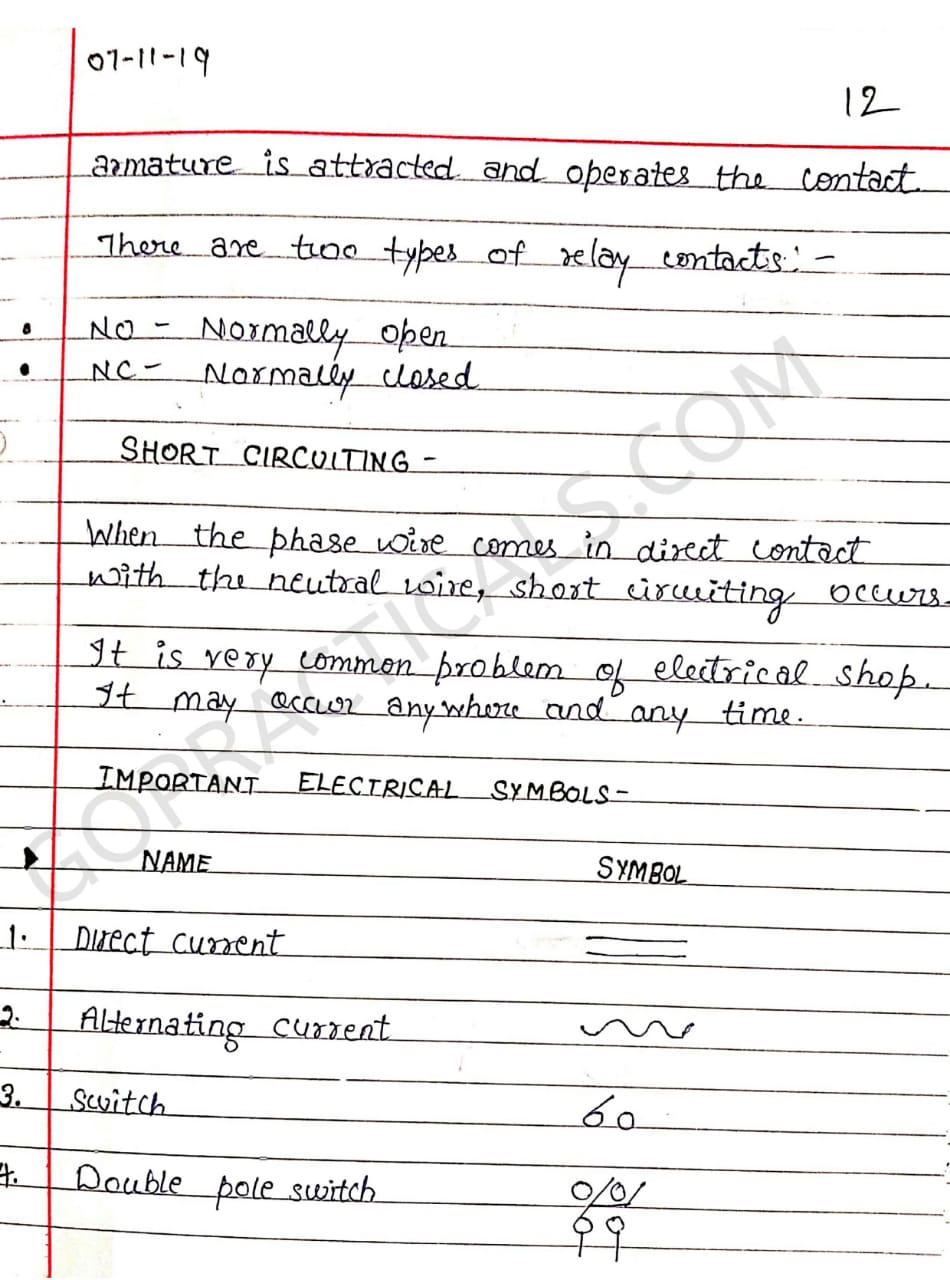 07-11-19
12
armature is attracted and operates the contact.
There are two types of relay contacts:-
• NO - Normally open
• NC - Normally closed
SHORT CIRCUITING -
When the phase wire comes in direct contact
with the neutral wire, short circuiting occurs.
It is very common problem of electrical shop.
It may occur anywhere and any time.
IMPORTANT ELECTRICAL SYMBOLS-
NAME SYMBOL
1. Direct current
2. Alternating current
3. Switch
4. Double pole switch
GOPRACTICALS.COM